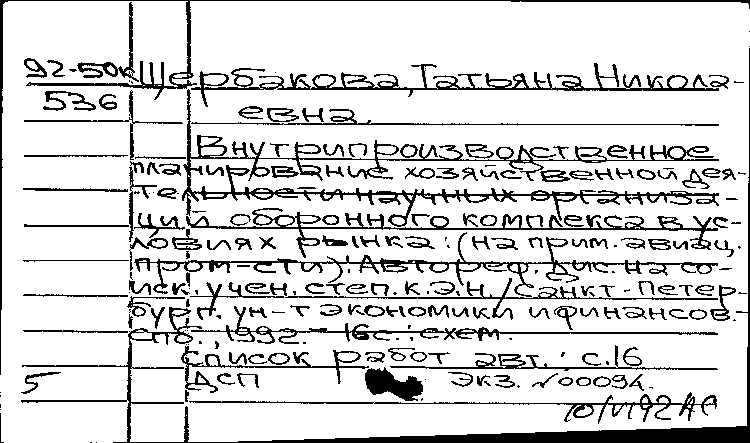 92-50к Щербакова, Татьяна Никола-
536 евна.
Внутрипроизводственное
планирование хозяйственной дея-
тельности научных организа-
ций оборонного комплекса в ус-
ловиях рынка: (на прим. авиац.
пром-сти): Автореф. дис. на со-
иск. учен. степ. к.э.н. / Санкт-Петер-
бург. ун-т экономики и финансов.-
СПб., 1992.- 16с.: схем.
Список работ авт.: с.16
5 ДСП экз. №00094.
10/VI92 АС